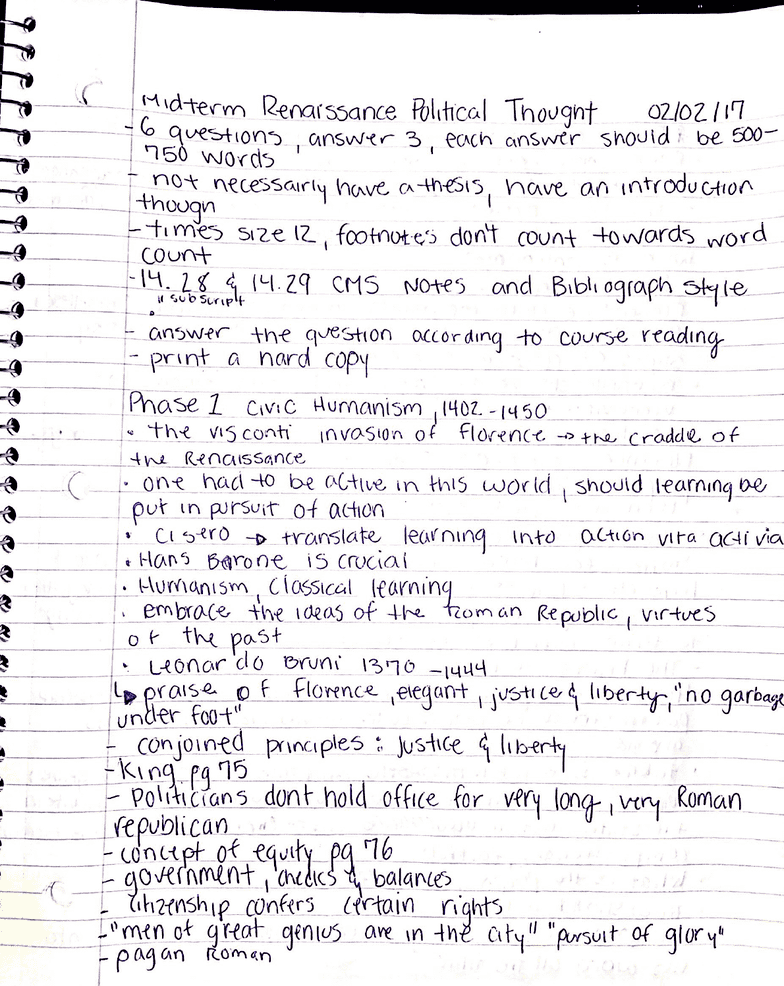 Midterm Renaissance Political Thought 02/02/17
- 6 questions, answer 3, each answer should be 500-
750 words
- not necessairly have a thesis, have an introduction
though
- times size 12, footnotes don't count towards word
count
- 14.28 & 14.29 CMS Notes and Bibliograph style
" subscript
- answer the question according to course reading
- print a hard copy
Phase 1 Civic Humanism, 1402-1450
• the visconti invasion of florence → the craddle of
the Renaissance
• one had to be active in this world, should learning be
put in pursuit of action
• Cisero → translate learning into action vita activia
• Hans Barone is crucial
• Humanism, classical learning
• embrace the ideas of the Roman Republic, virtues
of the past
• Leonardo Bruni 1370-1444
↳ praise of florence, elegant, justice & liberty, "no garbage
under foot"
- conjoined principles: justice & liberty
- King pg 75
- Politicians dont hold office for very long, very Roman
republican
- concept of equity pg 76
- government, checks & balances
- citizenship confers certain rights
- "men of great genius are in the city" "pursuit of glory"
- pagan Roman